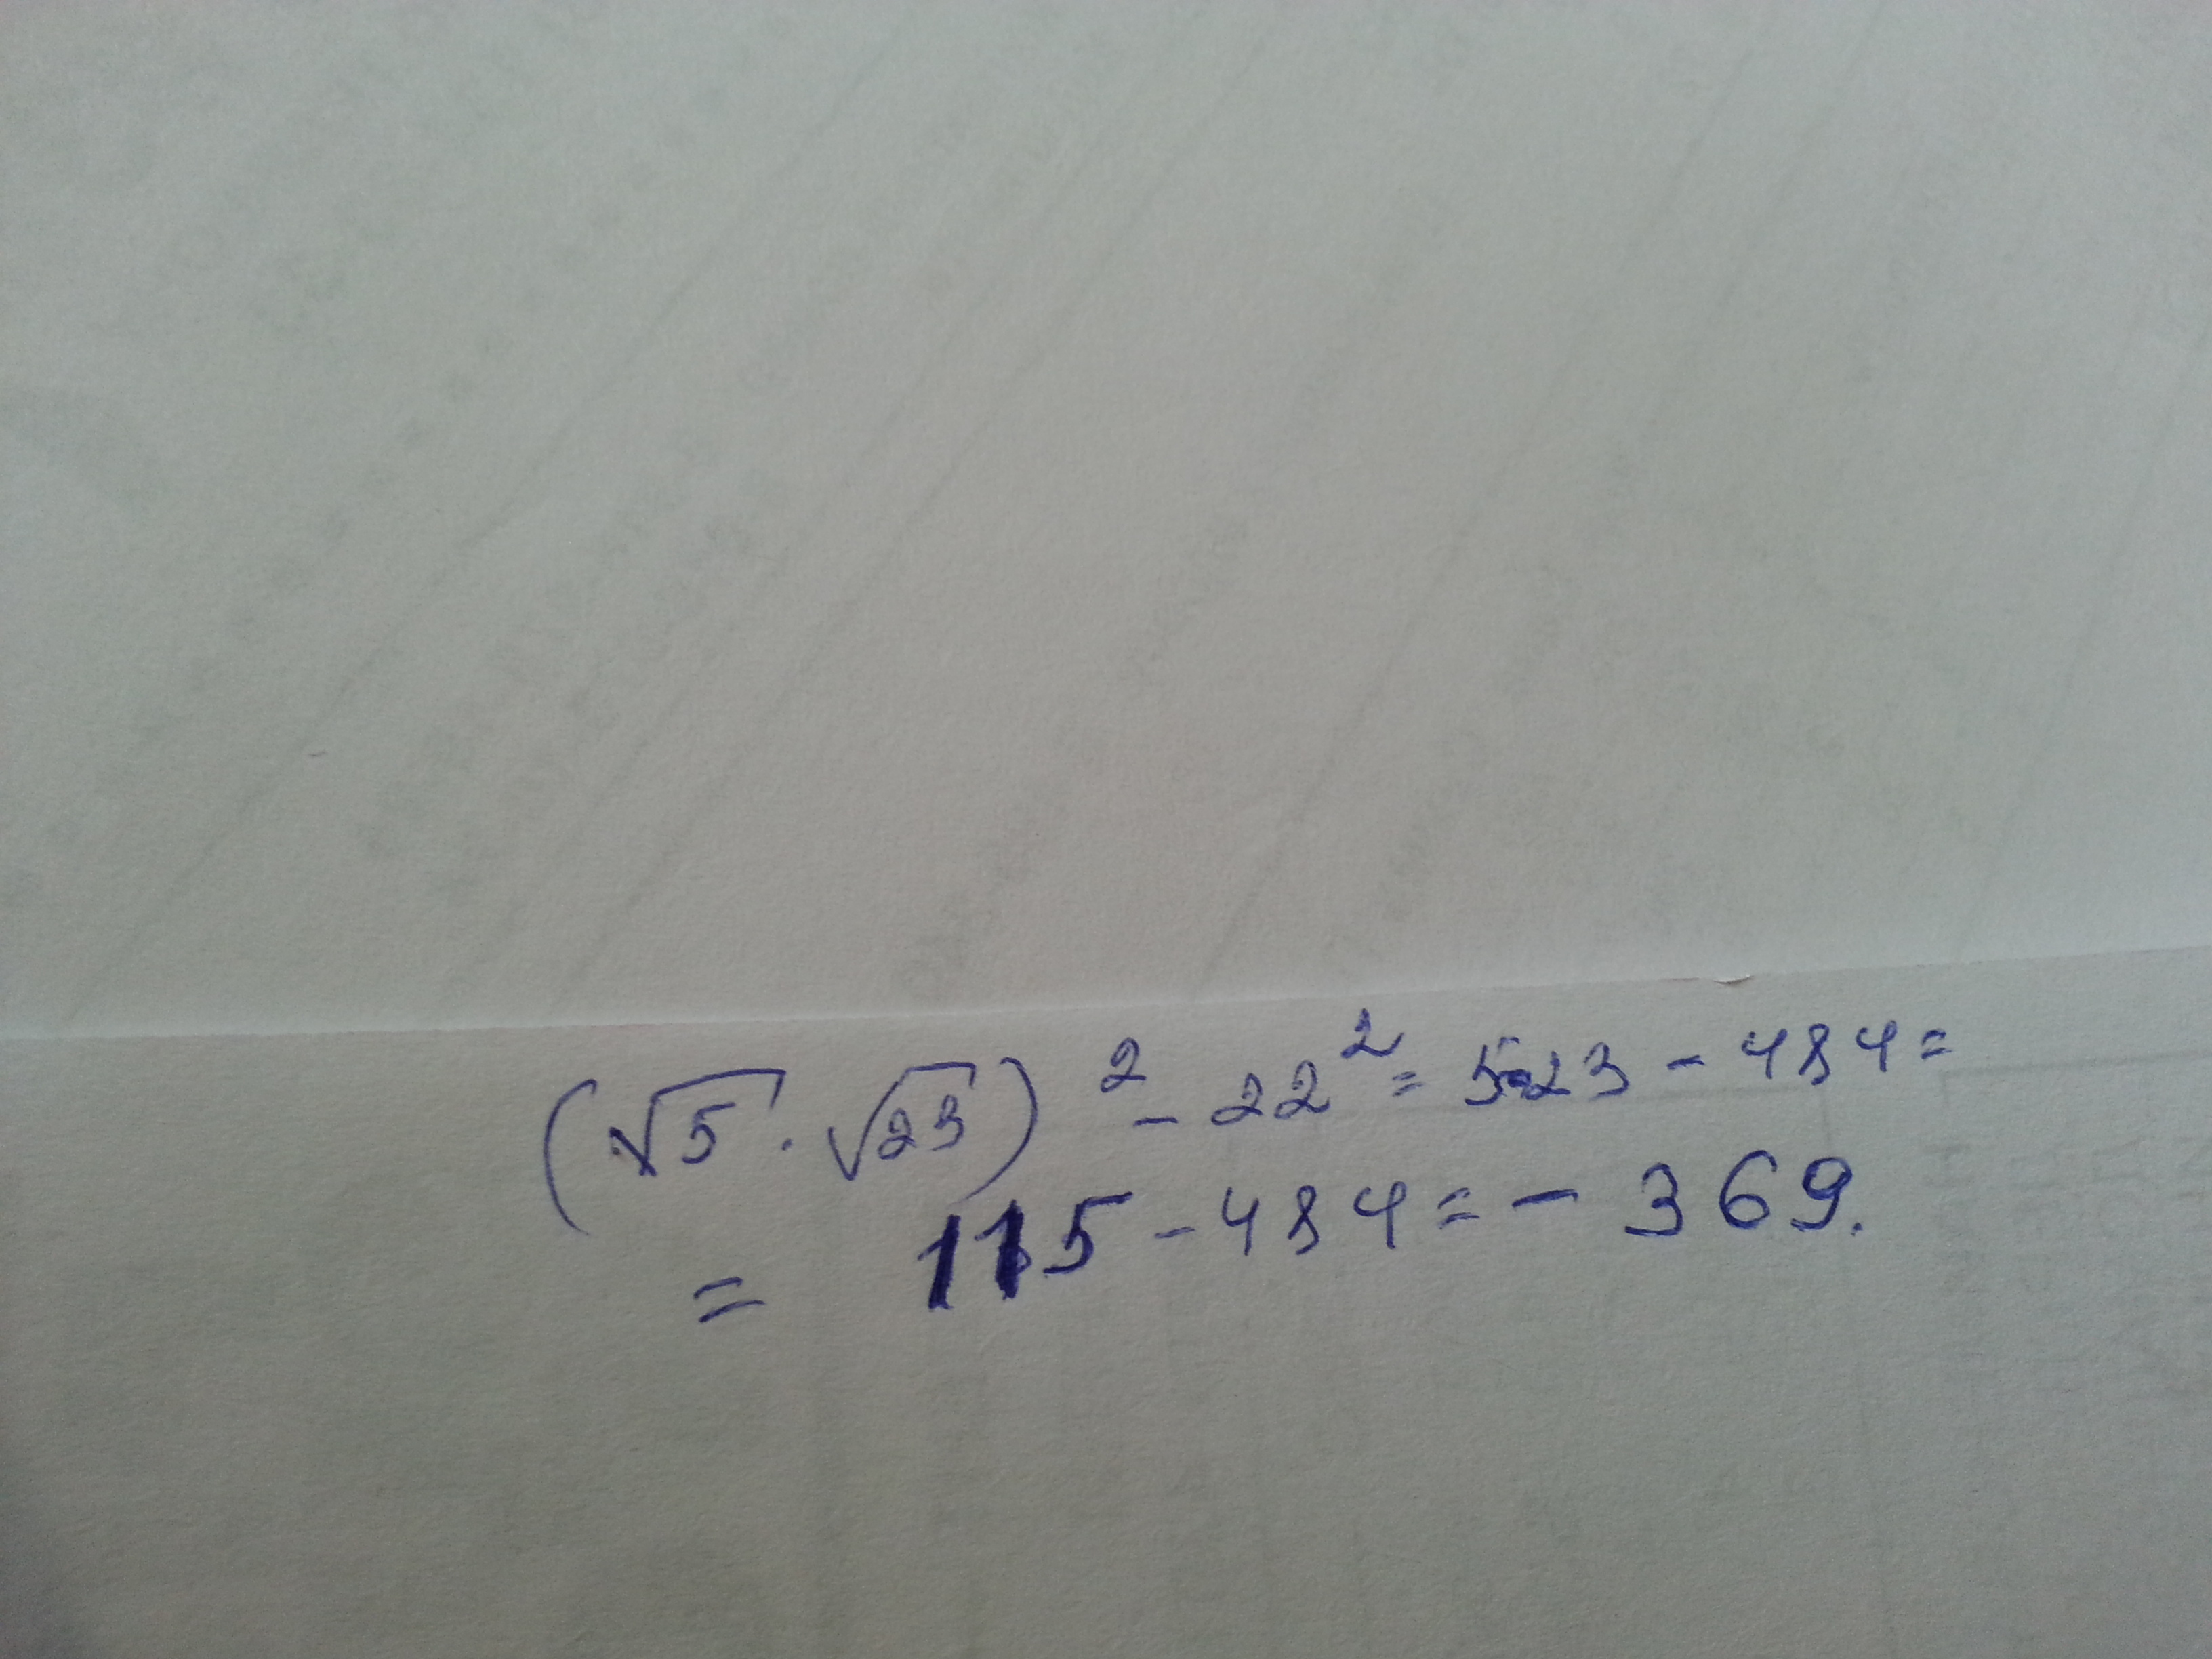 (√5 · √23)² - 22² = 5·23 - 484 =
= 115 - 484 = - 369.